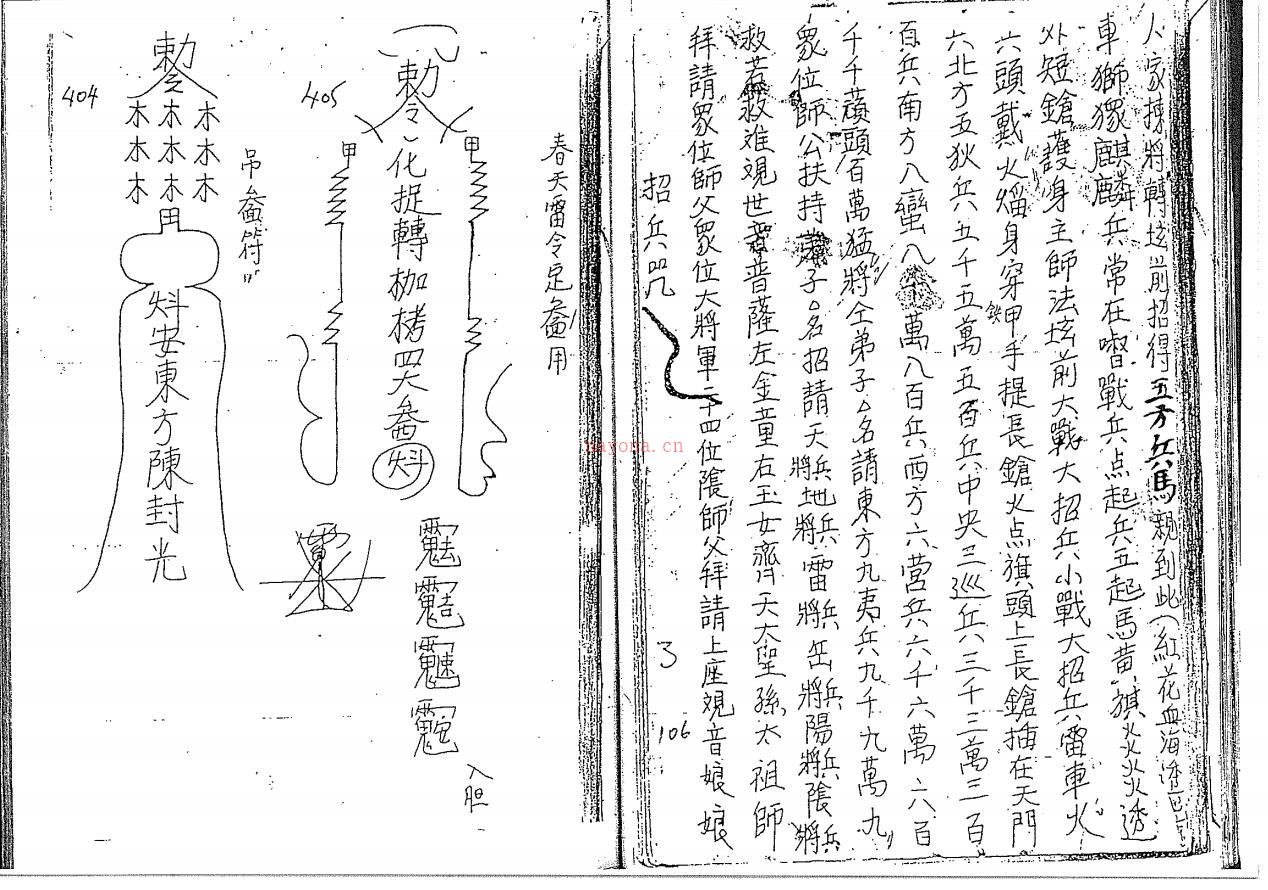 招兵咒
拜請眾位師父眾位大將軍二十四位陰師父拜請上座觀音娘娘
救苦救难观世音普薩左金童右玉女齊天大聖孫太祖師
眾位師公扶持弟子△名招請天兵天將地兵地將雷兵雷將岳兵岳將陽兵陽將陰兵陰將
千千蠻頭百萬猛將仝弟子△名請東方九夷兵九千九萬九
百兵南方八蠻八千萬八百兵西方六営兵六千六萬六百
六北方五狄兵五千五萬五百兵中央三巡兵三千三萬三百
六頭戴火熖身穿鉄甲手提長鎗火点旗頭上長鎗插在天門
外短鎗護身主師法坛前大戰大招兵小戰大招兵雷車火
車獅猴麒麟兵常在嘈戰兵点起兵五起馬黄旗火火火透
人家揀將轉坛前招得五方兵馬親到此(紅花血海
3
106
春天雷令定用
405
勅令
甲 甲
化捉轉枷栲四大
入胆
吊符
404
勅令
木木木
木木木
木木木
甲
安東方陳封光
nayona.cn